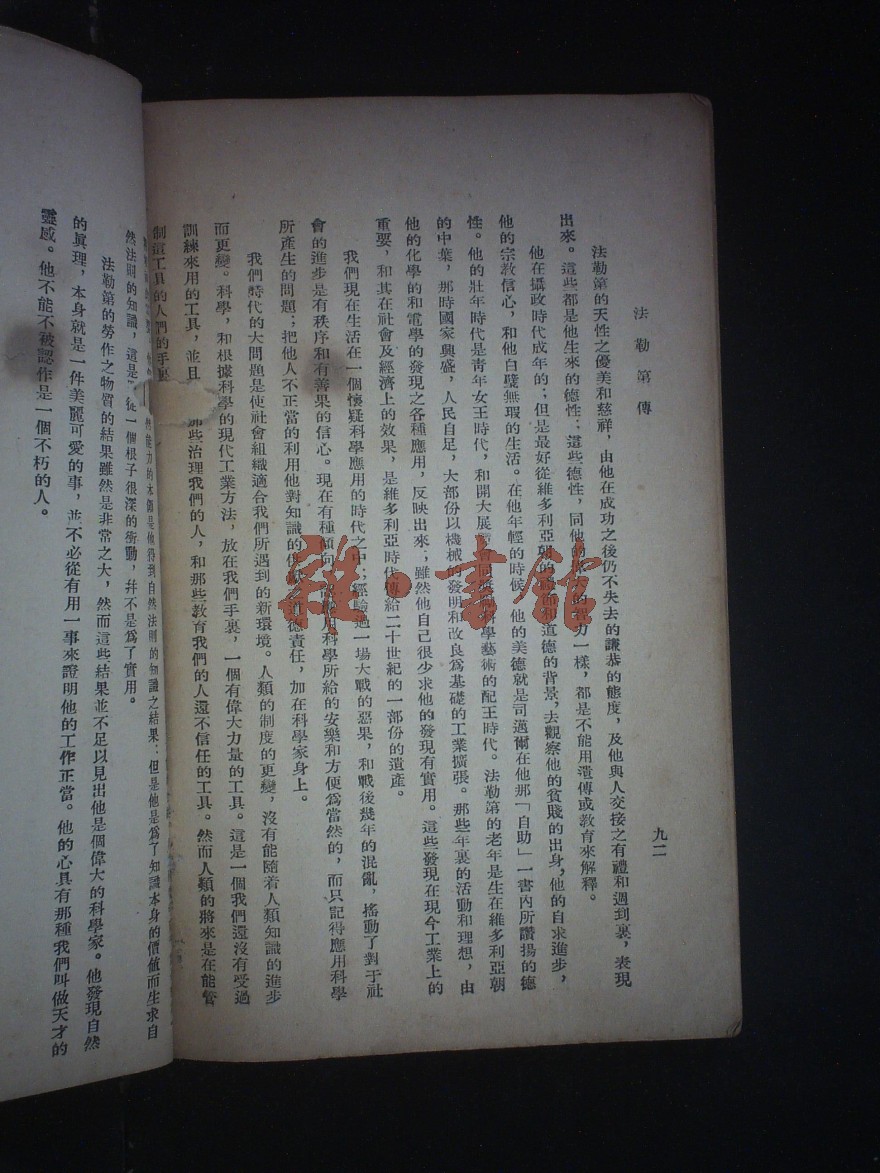 法勒第傳
九二
法勒第的天性之優美和慈祥，由他在成功之後仍不失去的謙恭的態度，及他與人交接之有禮和週到裏，表現
出來。這些都是他生來的德性；這些德性，同他的偉大的智力一樣，都是不能用遺傳或教育來解釋。
他在攝政時代成年的；但是最好從維多利亞朝的 面和道德的背景，去觀察他的貧賤的出身，他的自求進步，
他的宗教信心，和他白璧無瑕的生活。在他年輕的時候，他的美德就是司邁爾在他那「自助」一書內所讚揚的德
性。他的壯年時代是青年女王時代，和開大展覽會 科學藝術的配王時代。法勒第的老年是生在維多利亞朝
的中葉，那時國家興盛，人民自足，大部份以機械的發明和改良為基礎的工業擴張。那些年裏的活動和理想，由
他的化學的和電學的發現之各種應用，反映出來；雖然他自己很少求他的發現有實用。這些發現在現今工業上的
重要，和其在社會及經濟上的效果，是維多利亞時代傳給二十世紀的一部份的遺產。
我們現在生活在一個懷疑科學應用的時代之中；經驗過一場大戰的惡果，和戰後幾年的混亂，搖動了對于社
會的進步是有秩序和有善果的信心。現在有種傾向， 用科學所給的安樂和方便為當然的，而只記得應用科學
所產生的問題；把他人不正當的利用他對知識的 道德責任，加在科學家身上。
我們時代的大問題是使社會組織適合我們所遇到的新環境。人類的制度的更變，沒有能隨着人類知識的進步
而更變。科學，和根據科學的現代工業方法，放在我們手裏，一個有偉大力量的工具。這是一個我們還沒有受過
訓練來用的工具，並且 那些治理我們的人，和那些教育我們的人還不信任的工具。然而人類的將來是在能管
制這工具的人們的手裏
然能力的本領是他得到自然法則的知識之結果：但是他是為了知識本身的價值而生求自
然法則的知識，這是 從一個根子很深的衝動，幷不是為了實用。
法勒第的勞作之物質的結果雖然是非常之大，然而這些結果並不足以見出他是個偉大的科學家。他發現自然
的眞理，本身就是一件美麗可愛的事，並不必從有用一事來證明他的工作正當。他的心具有那種我們叫做天才的
靈感。他不能不被認作是一個不朽的人。
雜書館